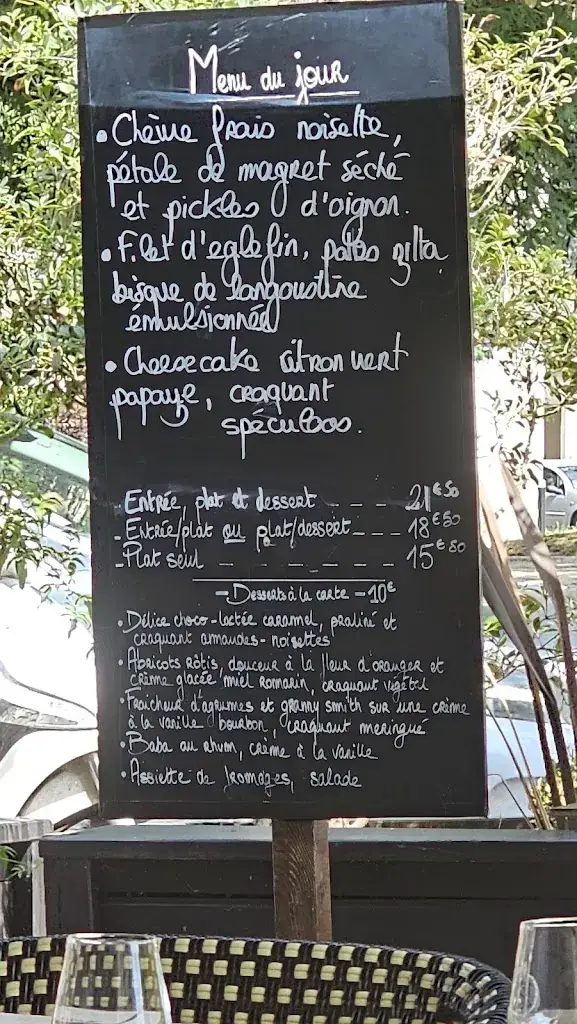 Menu du jour
• Chèvre frais noisette,
pétale de magret séché
et pickles d'oignon.
• Filet d'eglefin, pates
bisque de langoustine
émulsionnée
• Cheesecake citron vert
papaye, craquant
spéculoos.
Entrée, plat et dessert - - - 21€50
- Entrée/plat ou plat/dessert - - - 18€50
- Plat seul - - - - - - 15€80
- Desserts à la carte - 10€
• Délice choco-lactée caramel, praliné et
craquant amandes-noisettes
• Abricots rôtis, douceur à la fleur d'oranger et
crème glacée miel romarin, craquant végétal
• Fraicheur d'agrumes et granny smith sur une crème
à la vanille bourbon, craquant meringué
• Baba au rhum, crème à la vanille
• Assiette de fromages, salade